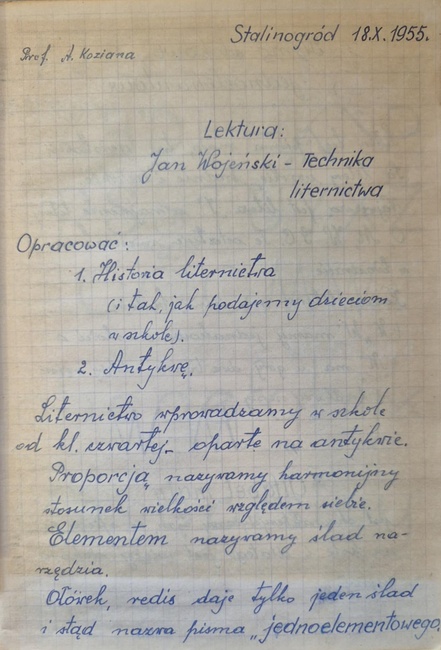 Stalinogród 18.X.1955.
Prof. A. Koziana
Lektura:
Jan Wojeński - Technika
liternictwa
Opracować:
1. Historia liternictwa
(i tak, jak podajemy dzieciom
w szkole).
2. Antykwę.
Liternictwo wprowadzamy w szkole
od kl. czwartej - oparte na antykwie.
Proporcją nazywamy harmonijny
stosunek wielkości względem siebie.
Elementem nazywamy ślad na-
rzędzia.
Ołówek, redis daje tylko jeden ślad
i stąd nazwa pisma „jednoelementowego.